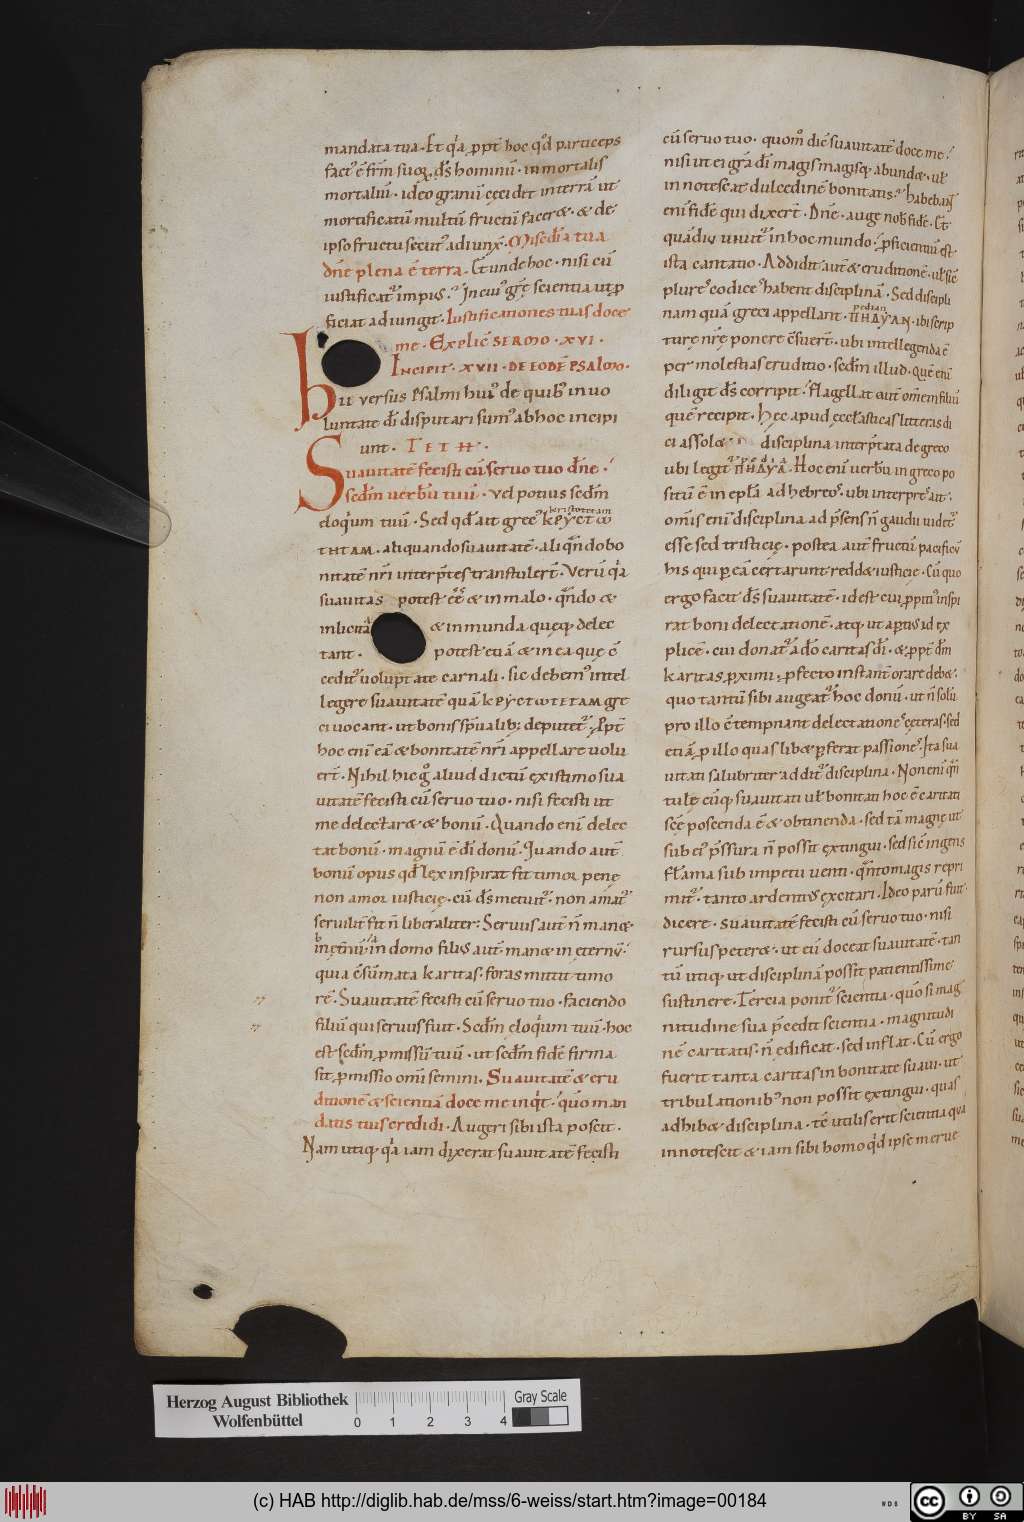 mandata tua. Et q'a ꝓpt̄ hoc q'd particeps
fact' ē frm̄ suoꝝ. ds̄ hominū. inmortalis
mortaliū. ideo granū ceciditt interrā ut
mortificatū multū fructū facer&. & de
ipso fructu secut' adiunx̄. Misedīa tua
dn̄e plena ē terra. Et unde hoc. nisi cū
iustificat' impius? In cui' grȩ̄ scientia ut ꝓ
ficiat adiungit. Iustificationes tuas doce
me. Explic̄ SERMO. XVI.
INCIPIT. XVII. DE EODĒ PSALMO.
hii versus Psalmi hui' de quib' in uo
luntate dī disputari sum' ab hoc incipi
unt. TETH.
Suavitatē fecisti cū servo tuo dn̄e.
sedm̄ verbū tuū. vel potius sedm̄
eloq'um tuū. Sed qd̄ ait grec'
aliquando suavitatē. aliqn̄do bo
nitatē nr̄i interp̄tes transtulert̄. Verū q'a
suavitas potest ēē & in malo. qn̄do &
inlicita & inmunda queq; delec
tant. potest etiā & in ea quę ē
cedit' voluptate carnali. sic debem' intel
legere suavitatē quā
ci vocant. ut bonis sp̄ualib; deputet'. Ppt̄
hoc enī eā & bonitatē nr̄i appellare volu
ert̄. Nihil hic g° aliud dictū existimo sua
vitatē fecisti cū servo tuo. nisi fecisti ut
me delectar& & bonū. Quando enī delec
tat bonū. magnū ē dī donū. Quando aut̄
bonū opus qd̄ lex inspirat fit timor penę
non amor iusticię. cū ds̄ metuit'. non amat'
servilit̄ fit n̄ liberaliter: Servus aut̄ n̄ man&.
in domo filius aut̄ man& in eternū.
quia c̄sūmata karitas. foras mittit timo
rē. Suavitatē fecisti cū servo tuo. faciendo
filiū qui servus fuit. Sedm̄ eloq'um tuū. hoc
est sedm̄ ꝓmissū tuū. ut sedm̄ fidē firma
sit ꝓmissio omī semini. Suavitatē & eru
ditionē & scientiā doce me inq't. quō man
datis tuis credidi. Augeri sibi ista poscit.
Nam utiq; q'a iam dixerat suavitatē fecisti
cū servo tuo. quom° dic̄ suavitatē doce me?
nisi ut ei grā dī magis magisq; abund&. vł
innotescat dulcedinē bonitatis? habebant
enī fidē qui dixert̄. Dn̄e. auge nob̄ fidē. Et
quādiu vivit' in hoc mundo. ꝓficientiū est
ista cantatio. Addidit aut̄ & eruditionē. vł sic̄
plure' codice' habent disciplinā. Sed discipli
nam quā greci appellant. ibi scrip
turę nr̄ę ponere c̄suert̄. ubi intellegenda ē
per molestias eruditio. sedm̄ illud. Quē enī
diligit ds̄ corripit. flagellat aut̄ omēm filiū
quē recipit. Hęc apud ecclasticas litteras di
ci assol&. disciplina interp̄tata de greco
ubi legit' Hoc enī verbū in greco po
situ ē in epła ad hebreos. ubi interpre' ait.
Om̄is enī disciplina ad p̄sens n̄ gaudii videt'
esse sed tristicię. postea aut̄ fructū pacificū
his qui ꝑ eā certarunt redd& iusticię. Cū quo
ergo facit ds̄ suavitatē. id est cui ꝓpiti' inspi
rat boni delectationē. atq; ut apertius id ex
plicē. cui donat' a do caritas dī. & ꝓpt̄ dm̄
karitas ꝓximi. ꝓfecto instant̄ orare deb&.
quo tantū sibi augeat' hoc donū. ut n̄ solū
pro illo c̄tempnant delectationes ceteras. sed
etiā ꝓ illo quaslib& ꝑferat passiones. Ita sua
vitati salubriter addit' disciplina. Non enī qn̄
tulę cūq; suavitati vł bonitati hoc ē caritati
scē poscenda ē & obtinenda. sed tā magnę ut
sub ei' p̄ssura n̄ possit extingui. sed sic̄ ingens
flāma sub impetu venti. qn̄tomagis repri
mit'. tanto ardentius excitari. Ideo parū fuit
dicere. suavitatē fecisti cū servo tuo. nisi
rursus peter&. ut eū doceat suavitatē. tan
tū utiq; ut disciplinā possit patientissime
sustinere. Tercia ponit' scientia. quō si mag
nitudine sua p̄cedit scientia. magnitudi
nē caritatis. n̄ edificat. sed inflat. Cū ergo
fuerit tanta caritas in bonitate suavi. ut
tribulationib' non possit extingui. quas
adhib& disciplina. tc̄ utilis erit scientia qua
innotescit & iam sibi homo q'd ipse merue
Herzog August Bibliothek
Wolfenbüttel
0 1 2 3 4
Gray Scale
(c) HAB http://diglib.hab.de/mss/6-weiss/start.htm?image=00184
WDB
cc BY SA